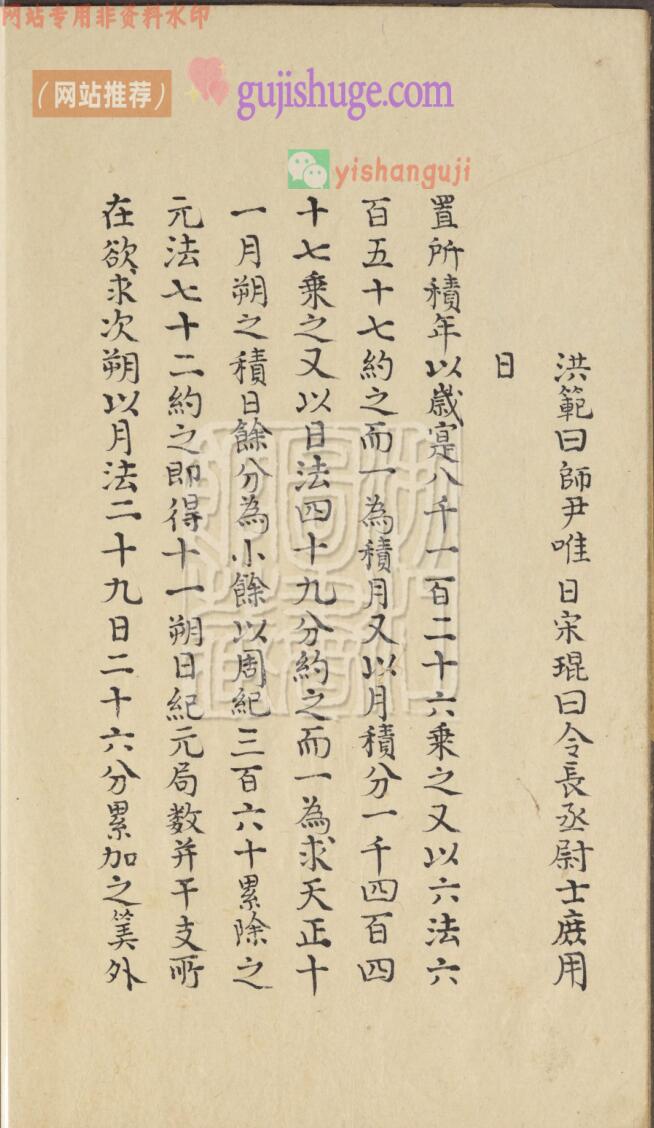 网站专用非资料水印
（网站推荐）
gujishuge.com
yishanguji
洪範曰師尹唯日宋琨曰令長丞尉士庶用
日
置所積年以歲寔八千一百二十六乗之又以六法六
百五十七約之而一為積月又以月積分一千四百四
十七乗之又以日法四十九分約之而一為求天正十
一月朔之積日餘分為小餘以周紀三百六十累除之
元法七十二約之即得十一朔日紀元局数并干支所
在欲求次朔以月法二十九日二十六分累加之筭外